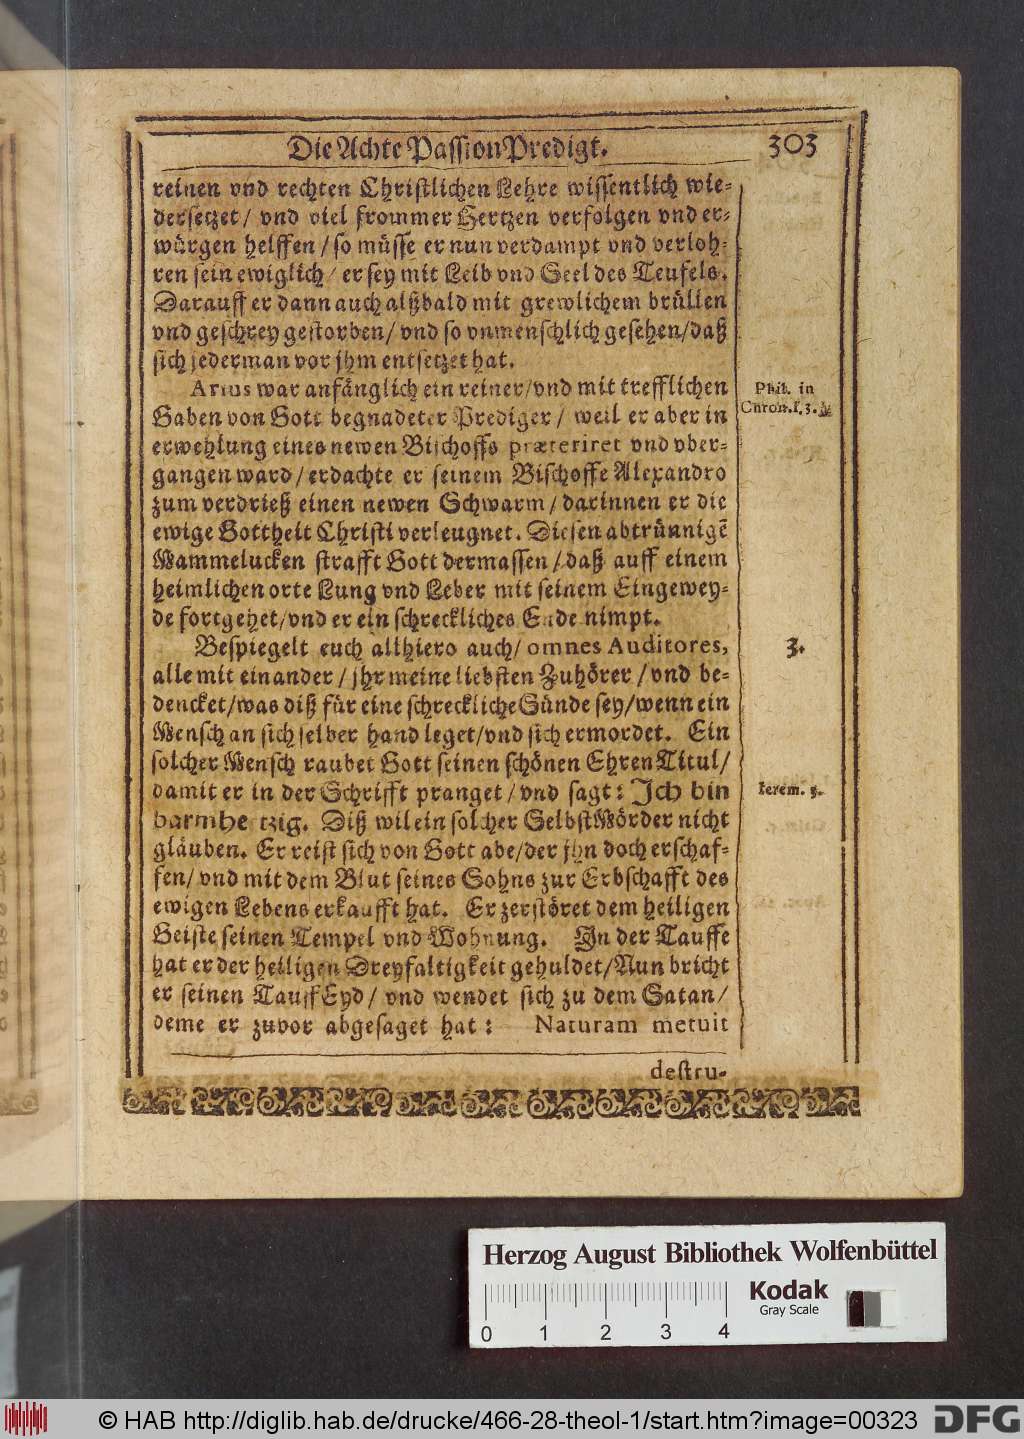 Die Achte Passion Predigt. 303
reinen vnd rechten Christlichen Lehre wissentlich wie-
dersetzet/ vnd viel frommer Hertzen verfolgen vnd er-
würgen helffen/ so müsse er nun verdampt vnd verloh-
ren sein ewiglich/ er sey mit Leib vnd Seel des Teufels.
Darauff er dann auch alßbald mit grewlichem brüllen
vnd geschrey gestorben/ vnd so vnmenschlich gesehen/ daß
sich jederman vor jhm entsetzet hat.
Arius war anfänglich ein reiner/ vnd mit trefflichen
Phil. in
Gaben von Gott begnadeter Prediger/ weil er aber in
Chron. l. 3.
erwehlung eines newen Bischoffs præteriret vnd vber-
gangen ward/ erdachte er seinem Bischoffe Alexandro
zum verdrieß einen newen Schwarm/ darinnen er die
ewige Gottheit Christi verleugnet. Diesen abtrünnigẽ
Mammelucken strafft Gott dermassen/ daß auff einem
heimlichen orte Lung vnd Leber mit seinem Eingewey-
de fortgehet/ vnd er ein schreckliches Ende nimpt.
Bespiegelt euch allhiero auch/ omnes Auditores,
3.
alle mit einander/ jhr meine liebsten Zuhörer/ vnd be-
dencket/ was diß für eine schreckliche Sünde sey/ wenn ein
Mensch an sich selber hand leget/ vnd sich ermordet. Ein
solcher Mensch raubet Gott seinen schönen Ehren Titul/
damit er in der Schrifft pranget/ vnd sagt: Ich bin
Ierem. 3.
barmhe tzig. Diß wil ein solcher Selbst Mörder nicht
gläuben. Er reist sich von Gott abe/ der jhn doch erschaf-
fen/ vnd mit dem Blut seines Sohns zur Erbschafft des
ewigen Lebens erkaufft hat. Er zerstöret dem heiligen
Geiste seinen Tempel vnd Wohnung. In der Tauffe
hat er der heiligen Dreyfaltigkeit gehuldet/ Nun bricht
er seinen Tauff Eyd/ vnd wendet sich zu dem Satan/
deme er zuvor abgesaget hat: Naturam metuit
destru-
Herzog August Bibliothek Wolfenbüttel
0 1 2 3 4
Kodak
Gray Scale
© HAB http://diglib.hab.de/drucke/466-28-theol-1/start.htm?image=00323
DFG